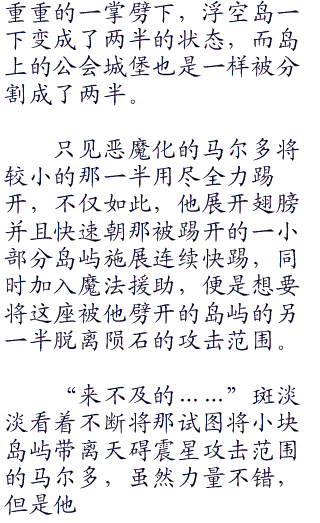 重重的一掌劈下，浮空岛一
下变成了两半的状态，而岛
上的公会城堡也是一样被分
割成了两半。
只见恶魔化的马尔多将
较小的那一半用尽全力踢
开，不仅如此，他展开翅膀
并且快速朝那被踢开的一小
部分岛屿施展连续快踢，同
时加入魔法援助，便是想要
将这座被他劈开的岛屿的另
一半脱离陨石的攻击范围。
“来不及的……”斑淡
淡看着不断将那试图将小块
岛屿带离天碍震星攻击范围
的马尔多，虽然力量不错，
但是他